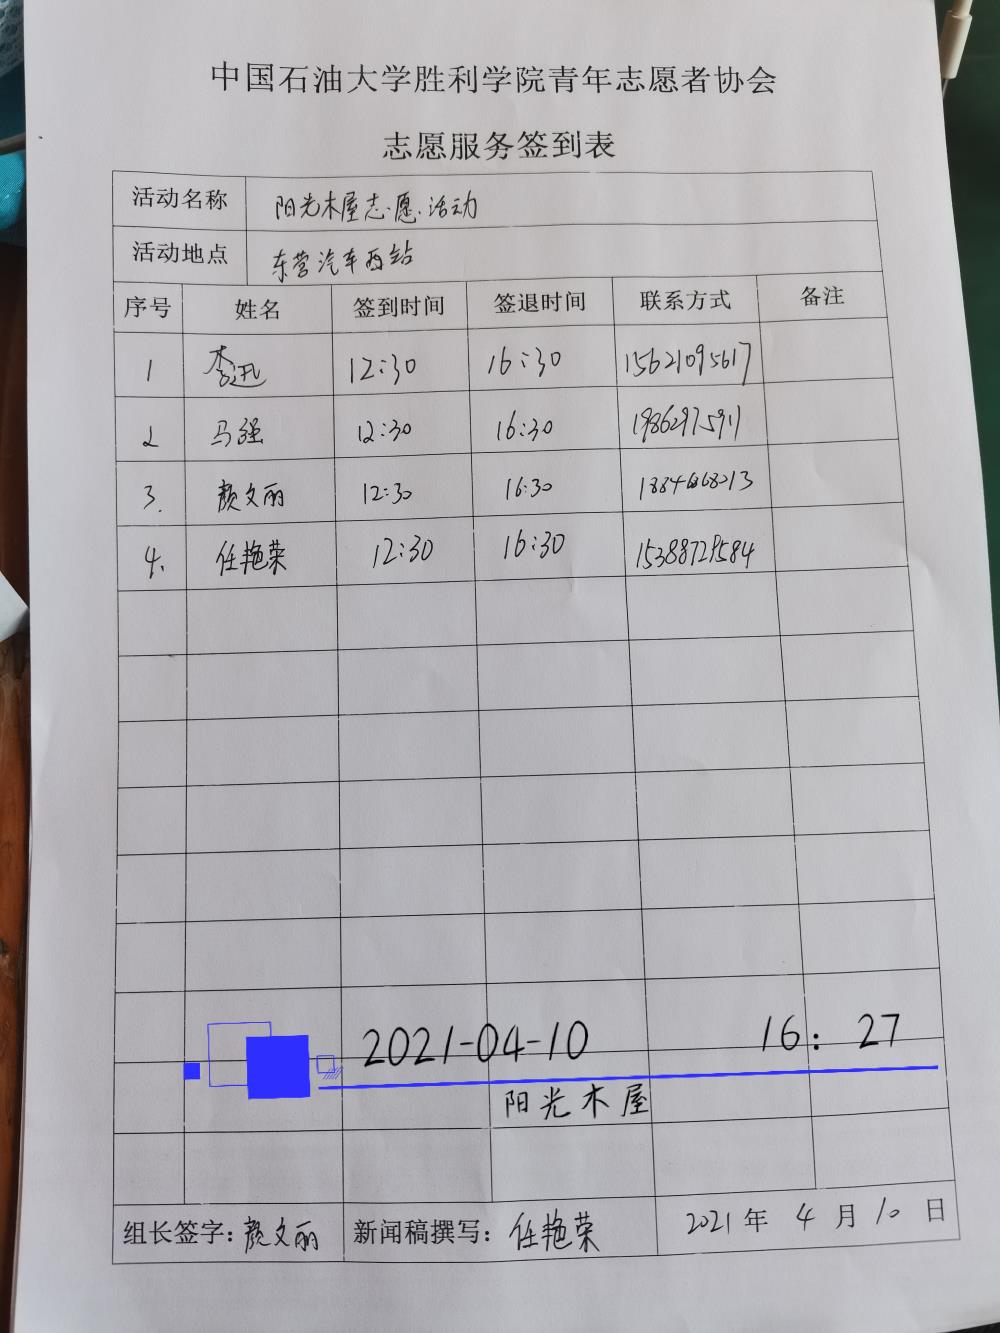 中国石油大学胜利学院青年志愿者协会
志愿服务签到表
活动名称 阳光木屋志愿活动
活动地点 东营汽车西站
序号 姓名 签到时间 签退时间 联系方式 备注
1 李迅 12:30 16:30 15621095617
2 马强 12:30 16:30
3. 颜文丽 12:30 16:30
4. 任艳荣 12:30 16:30 15388729584
2021-04-10 16：27
阳光木屋
组长签字：颜文丽 新闻稿撰写：任艳荣 2021年 4月10日